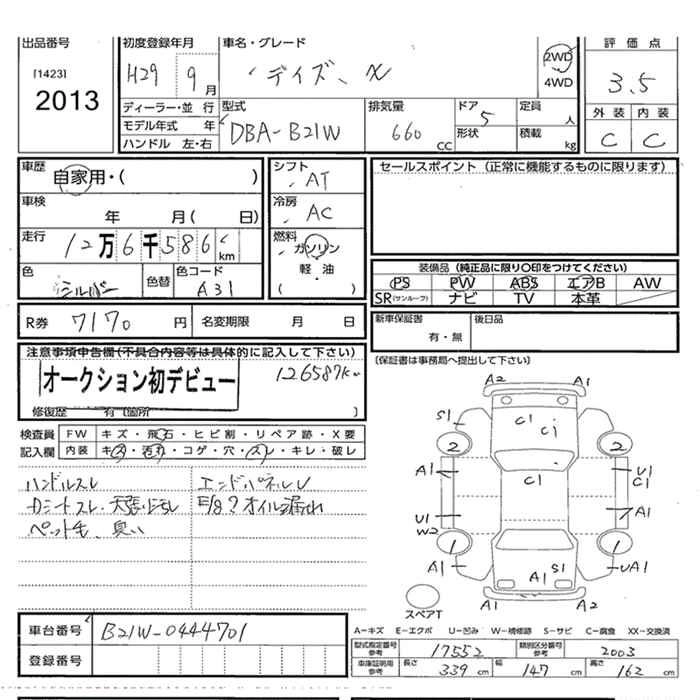 出品番号 初度登録年月 車名・グレード 評価点
[1423] H29 9月 デイズ、X 2WD 3.5
2013 4WD
ディーラー・並行 型式 排気量 ドア 5 定員 人 外装 内装
モデル年式 年 DBA-B21W 660 CC 形状 積載 kg C C
ハンドル 左・右
車歴 自家用・( ) シフト AT セールスポイント (正常に機能するものに限ります)
車検 年 月( 日) 冷房 AC
走行 12万6千586 km 燃料 ガソリン
軽・油
装備品 (純正品に限り○印をつけてください)
色 シルバー 色替 色コード A31 PS PW ABS エアB AW
SR(サンルーフ) ナビ TV 本革
R券 7170 円 名変期限 月 日 新車保証書 有・無 後日品
注意事項申告欄(不具合内容等は具体的に記入して下さい) (保証書は事務局へ提出して下さい)
オークション初デビュー 126587Km
修復歴 有(箇所 )
検査員 FW キズ・飛石・ヒビ割・リペア跡・X要
記入欄 内装 キズ・汚れ・コゲ・穴・スレ・キレ・破レ
ハンドルスレ エンドパネルU
カミートスレ・天張・ヨゴレ オイル漏れ
ペット毛、臭い
A2 A1
S1 C1 C1
2 2
A1 C1 U1
C1
U1 A1
W2
1 1
A1 A1 S1 UA1
A1 A2
スペアT
車台番号 B21W-0444701
登録番号
A-キズ E-エクボ U-凹み W-補修跡 S-サビ C-腐食 XX-交換済
型式指定番号 参考 17552 類別区分番号 参考 2003
車庫証明用 参考 長さ 339 cm 幅 147 cm 高さ 162 cm